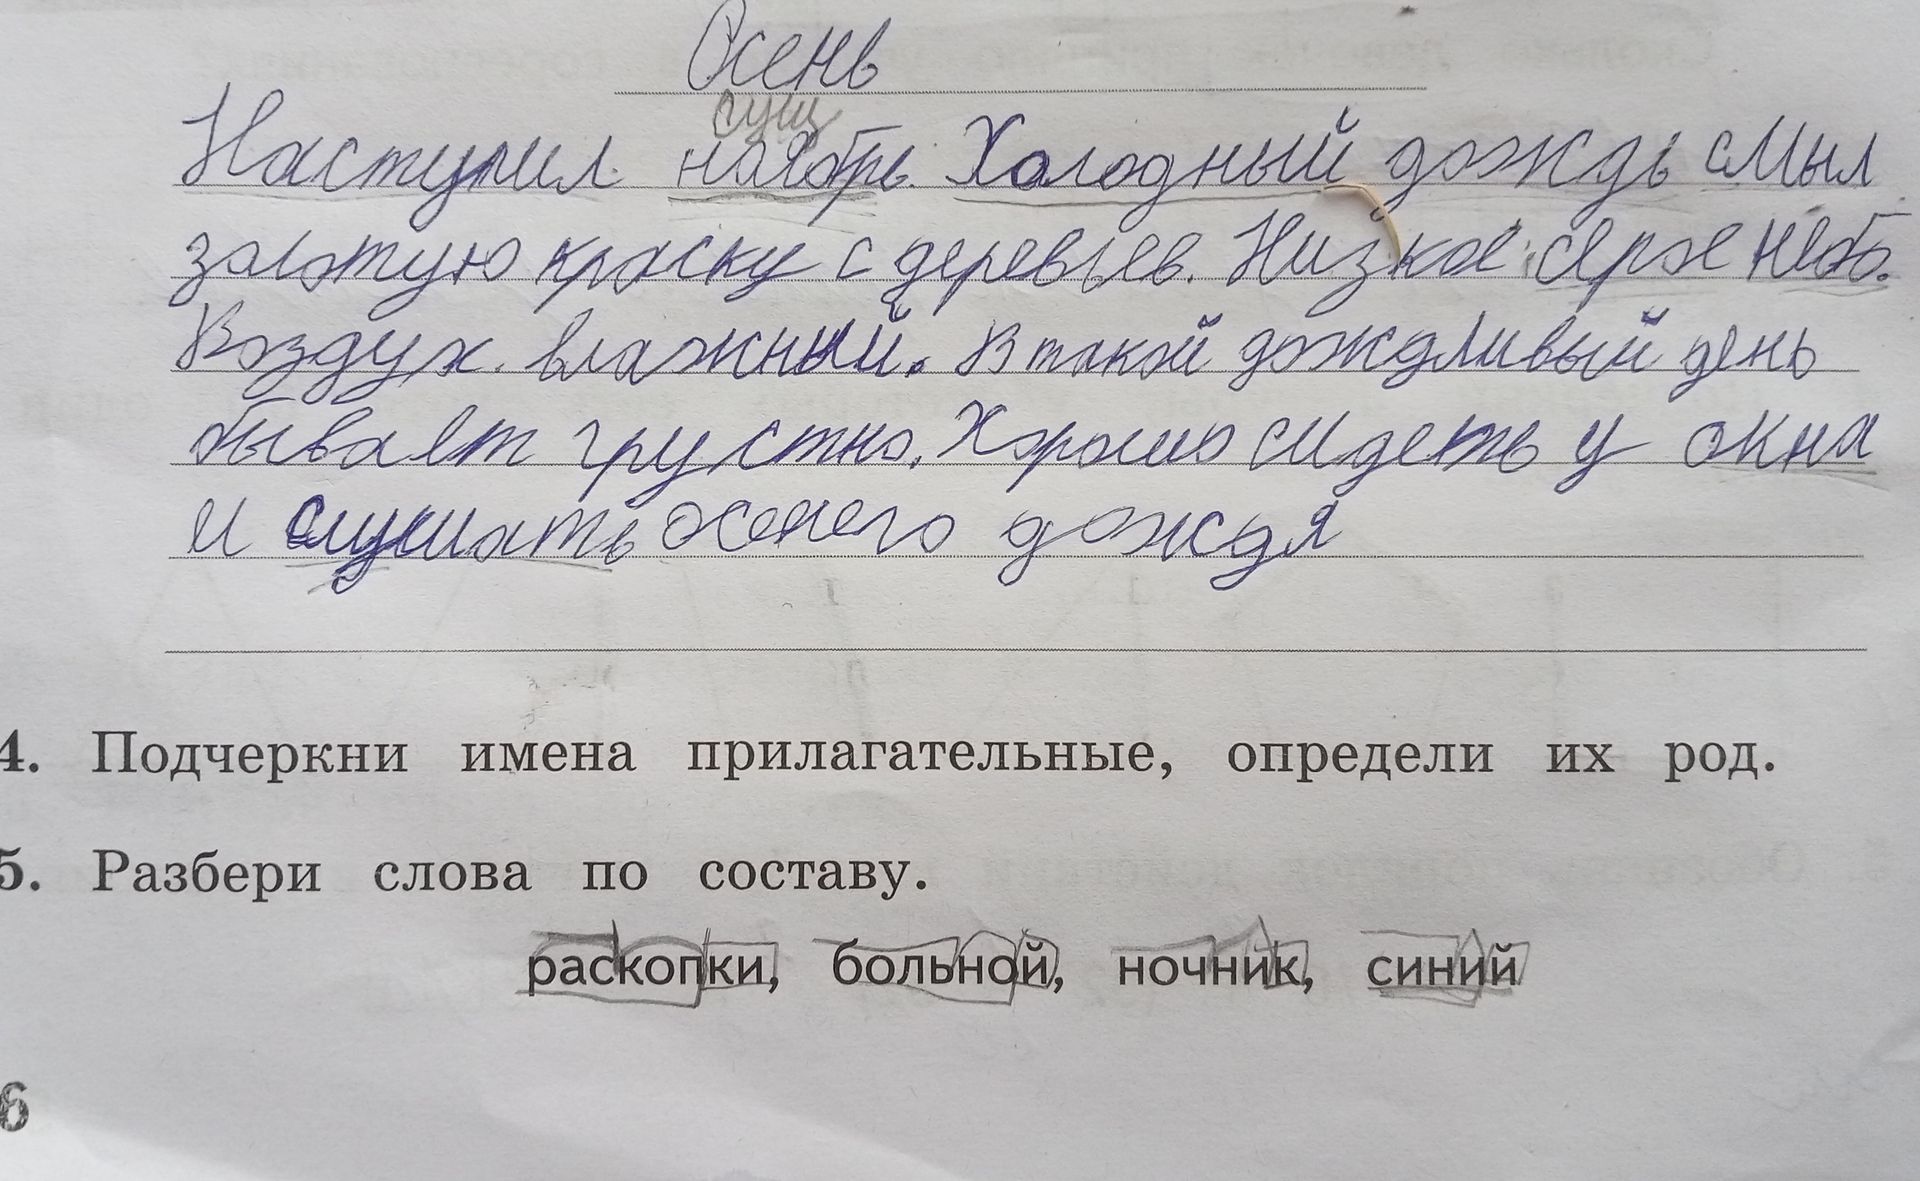 Осень
сущ
Наступил ноябрь. Холодный дождь смыл
золотую краску с деревьев. Низкое серое небо.
Воздух влажный. В такой дождливый день
бывает грустно. Хорошо сидеть у окна
и слушать осенего дождя
4. Подчеркни имена прилагательные, определи их род.
5. Разбери слова по составу.
раскопки, больной, ночник, синий
6